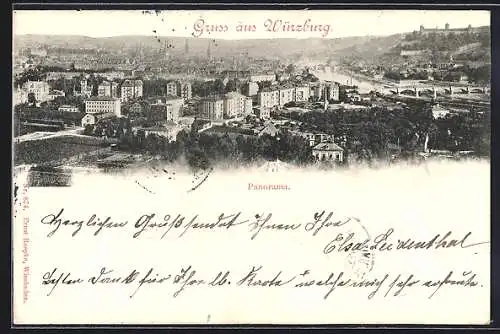 Gruss aus Würzburg.
Panorama.
Herzlichen Gruß sendet Ihnen Ihr
Elsa Leidenthal
Besten Dank für Ihr lb. Karte welche mich sehr erfreute.
674. Ernst Roepke, Wiesbaden.